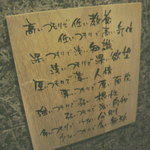 高いつもりで低い教養
低いつもりで高い気位
深いつもりで浅い知識
浅いつもりで深い欲望
厚いつもりで薄い人情
薄いつもりで厚い面皮
強いつもりで弱い根性
弱いつもりで強い自我
多いつもりで少い分別
少いつもりで多い無駄